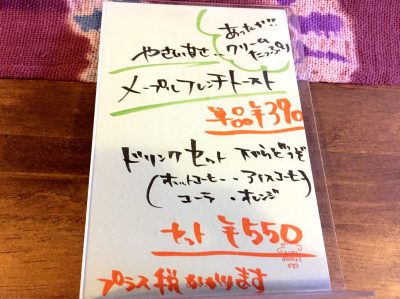 あったか!!
クリーム
たっぷり
やさい好き‥
メープルフレンチトースト
単品¥390
ドリンクセット 下からどうぞ
(ホットコーヒー・アイスコーヒー
コーラ・オレンジ
セット ¥550
プラス税かかります